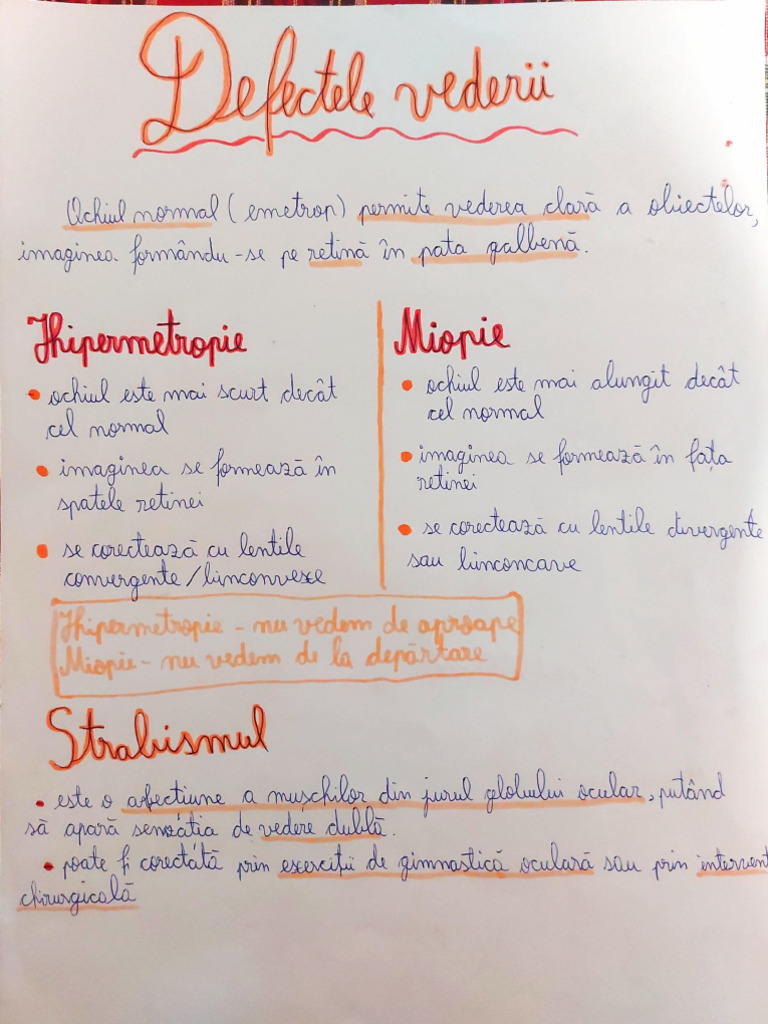 Defectele vederii
Ochiul normal (emetrop) permite vederea clară a obiectelor,
imaginea formându-se pe retină în pata galbenă.
Hipermetropie
• ochiul este mai scurt decât
cel normal
• imaginea se formează în
spatele retinei
• se corectează cu lentile
convergente/binconvexe
Miopie
• ochiul este mai alungit decât
cel normal
• imaginea se formează în fața
retinei
• se corectează cu lentile divergente
sau binconcave
Hipermetropie - nu vedem de aproape
Miopie - nu vedem de la depărtare
Strabismul
• este o afecțiune a mușchilor din jurul globului ocular, putând
să apară senzația de vedere dublă.
• poate fi corectată prin exerciții de gimnastică oculară sau prin intervent
chirurgicală